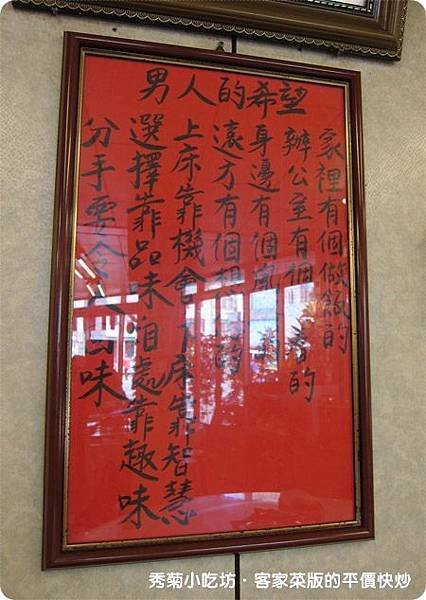 男人的希望
家裡有個做飯的
辦公室有個 春的
身邊有個
遠方有個想 的
上床靠機會下床靠智慧
選擇靠品味相處靠趣味
分手要 味
秀菊小吃坊·客家菜版的平價快炒